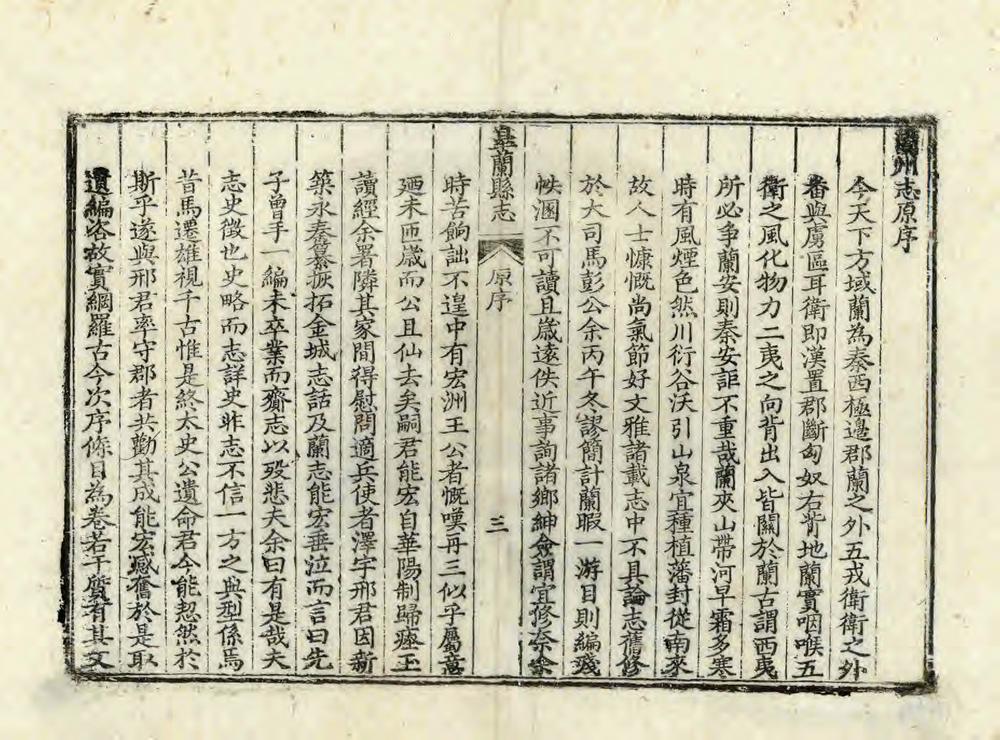 蘭州志原序
今天下方域蘭為秦西極邊郡蘭之外五戎衛衛之外
番與虜區耳衛即漢置郡斷匈奴右背地蘭實咽喉五
衛之風化物力二夷之向背出入皆關於蘭古謂西夷
所必争蘭安則秦安詎不重哉蘭夾山帶河早霜多寒
時有風煙色然川衍谷沃引山泉宜種植藩封從南來
故人士慷慨尚氣節好文雅諸載志中不具論志舊修
於大司馬彭公余丙午冬謬簡計蘭暇一游目則編殘
帙溷不可讀且歳遠佚近事詢諸鄉紳僉謂宜修奈余
皐蘭縣志
原序
三
時苦餉詘不遑中有宏洲王公者慨嘆再三似乎屬意
廼未匝歳而公且仙去矣嗣君能宏自華陽制歸瘞玉
讀經余署隣其家間得慰問適兵使者澤宇邢君因新
築永泰纂恢拓金城志話及蘭志能宏垂泣而言曰先
子曾手一編未卒業而齎志以歿悲夫余曰有是哉夫
志史徵也史略而志詳史非志不信一方之與型係焉
昔馬遷雄視千古惟是終太史公遺命君今能恝然於
斯乎遂與邢君率守郡者共勸其成能宏感奮於是取
遺編咨故實綱羅古今次序條目為卷若干質有其文